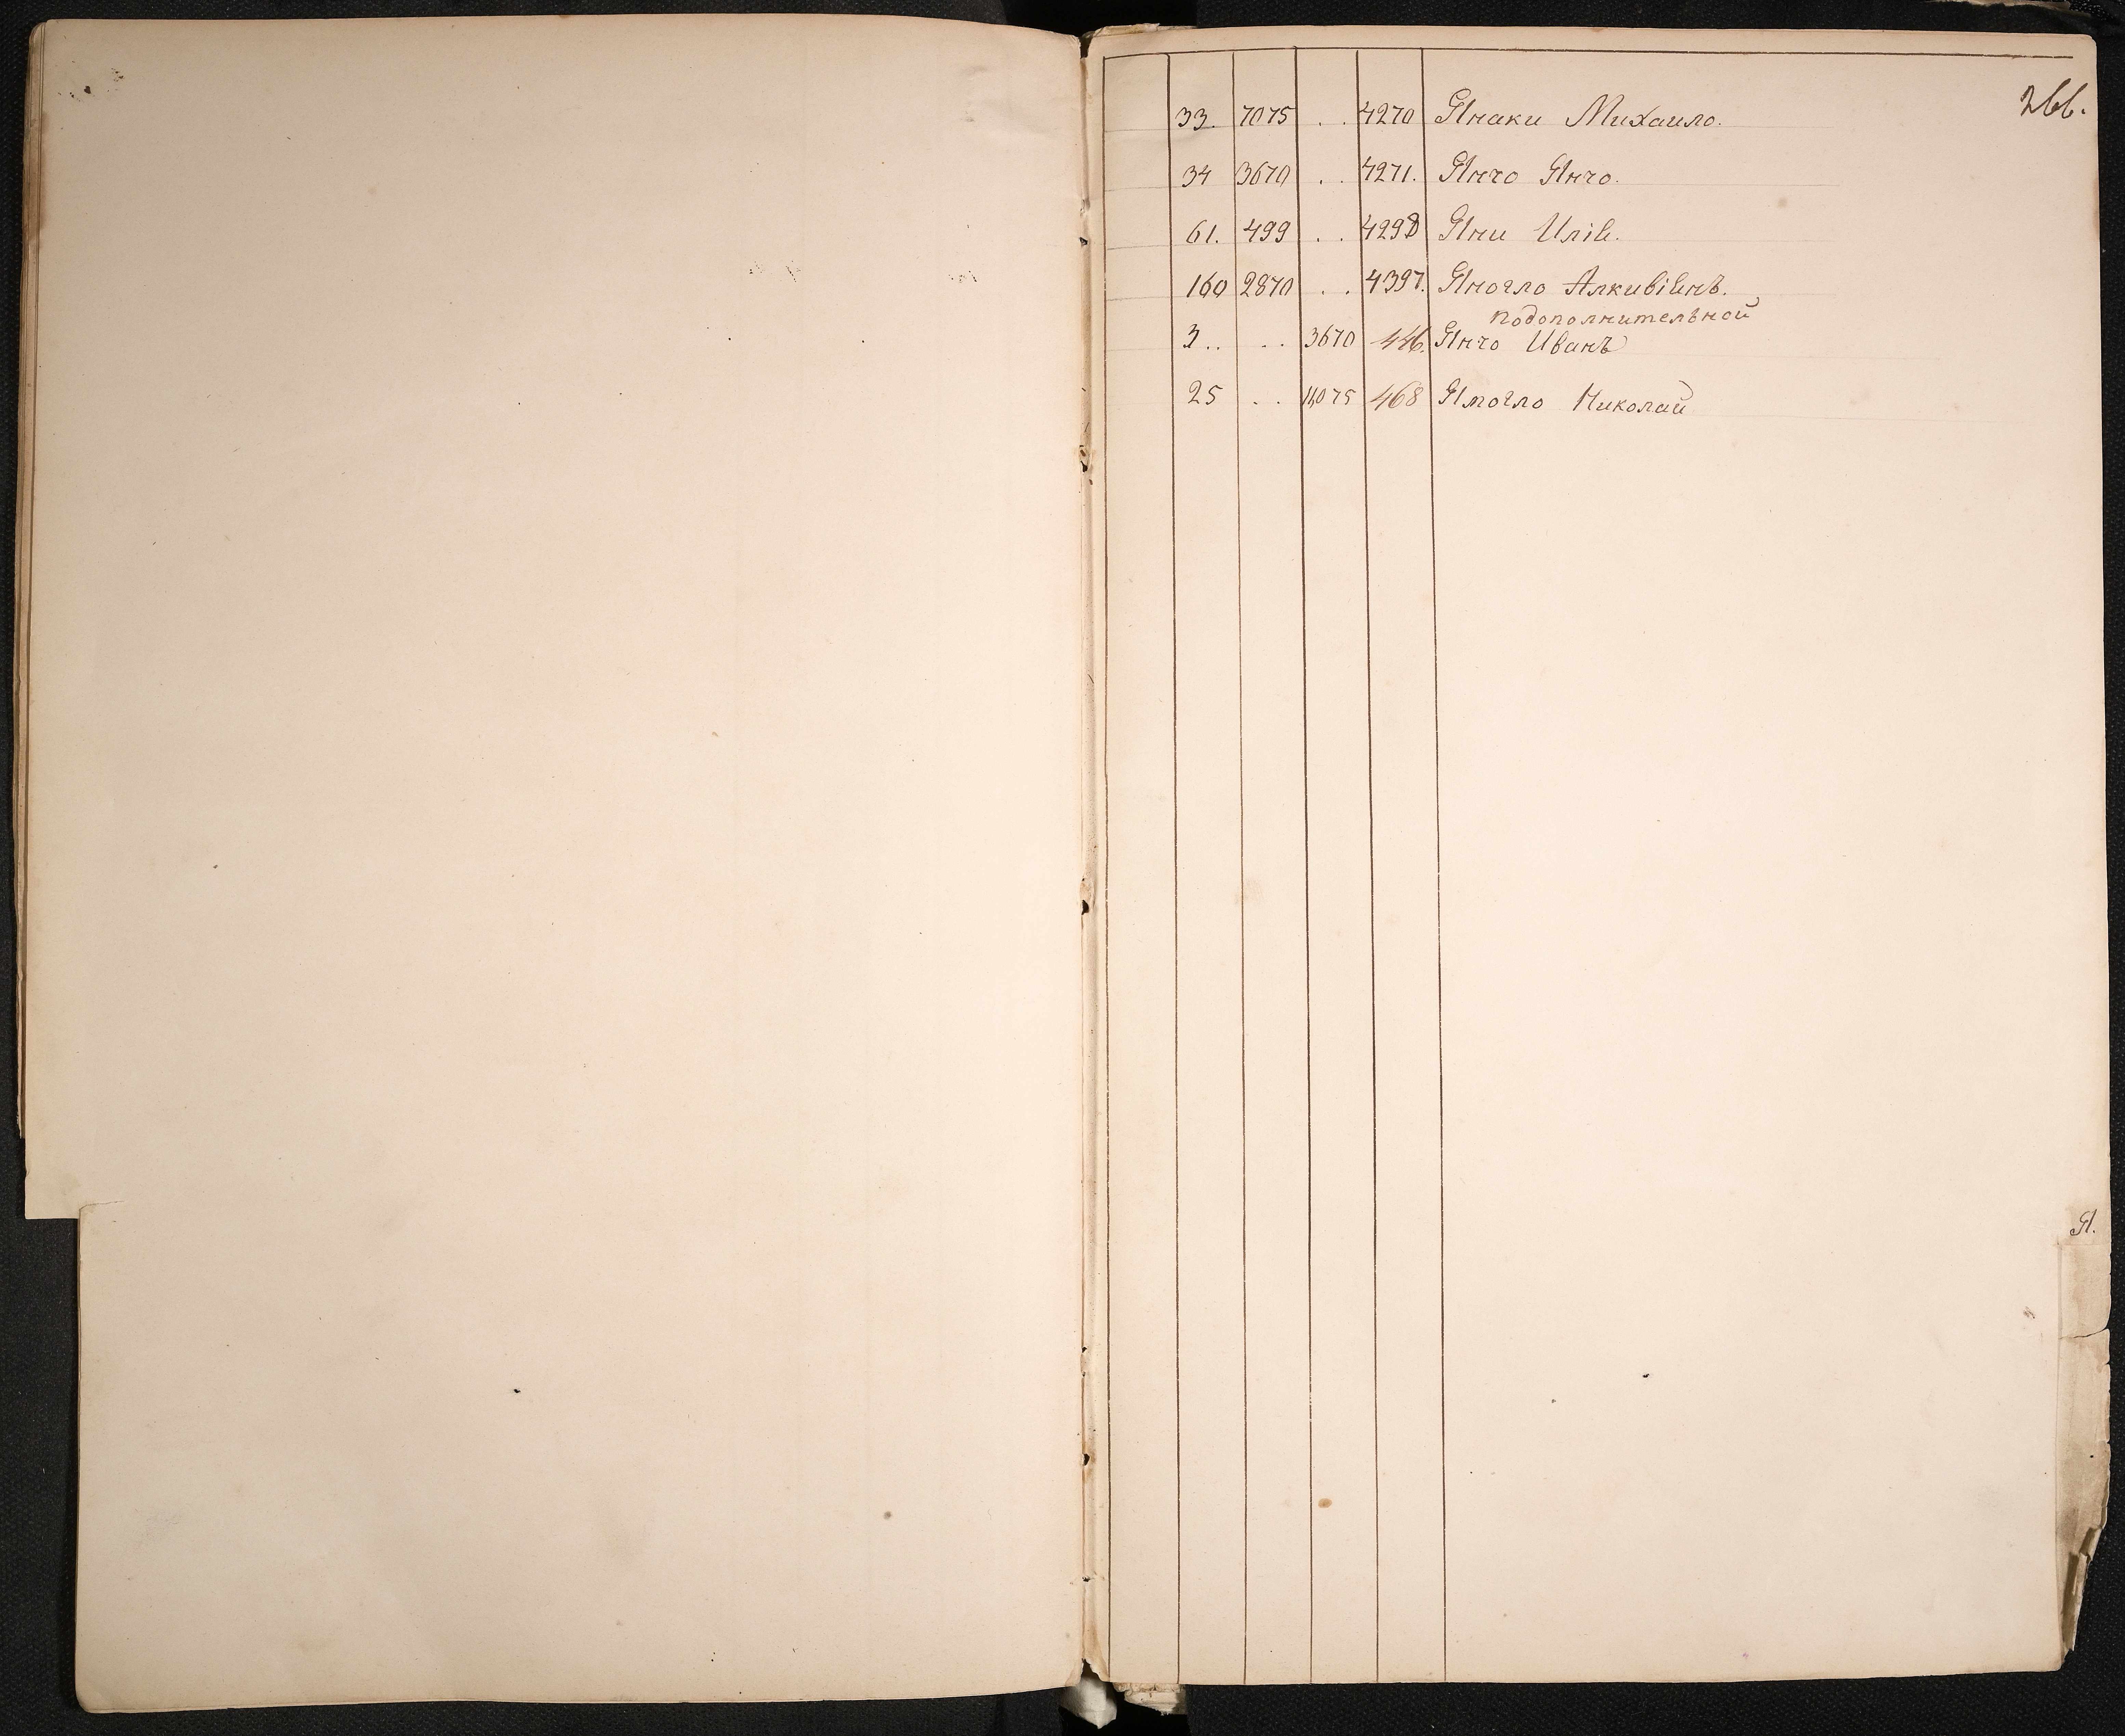 266.
33. 7075 . . 4270 Янаки Михаило.
34 3670 . . 4271. Янчо Янчо.
61. 499 . . 4298 Яни Илія.
160 2870 . . 4397. Яногло Алкивіянъ.
подополнительной
3 . . . . 3670 446. Янчо Иванъ
25 . . 11075 468 Ямогло Николай
Я.